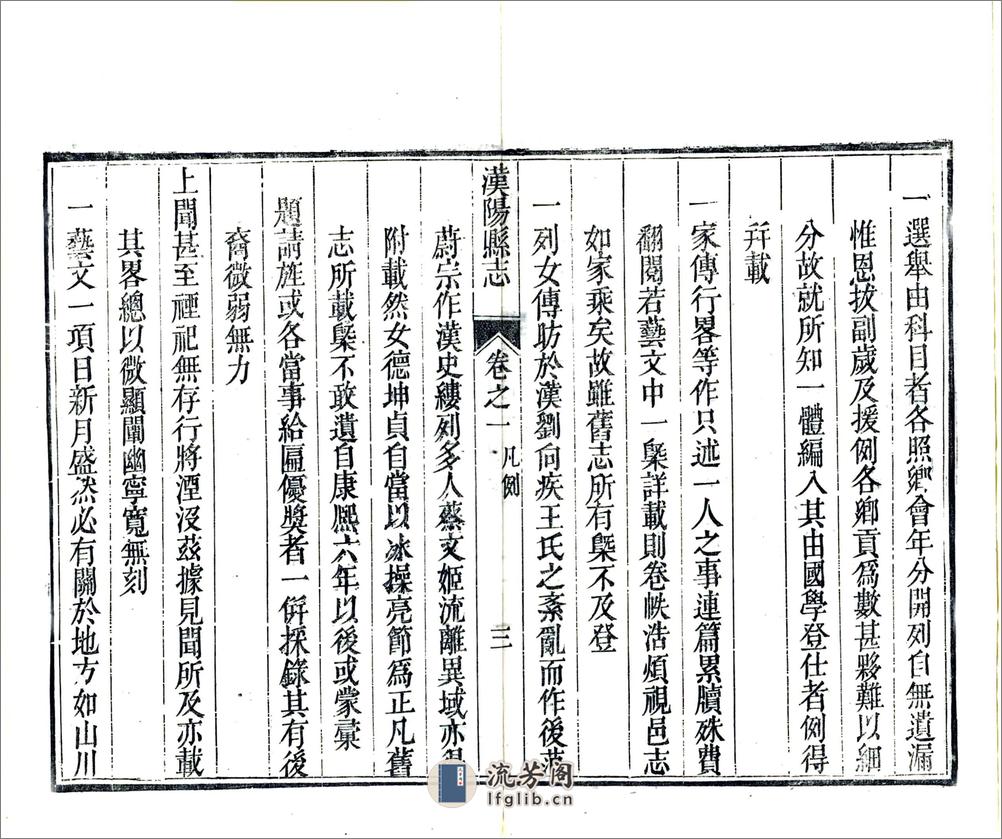 一選舉由科目者各照鄉會年分開列自無遺漏
惟恩拔副歲及援例各鄉貢爲數甚夥難以細
分故就所知一體編入其由國學登仕者例得
幷載
一家傳行畧等作只述一人之事連篇累牘殊費
翻閱若藝文中一槩詳載則卷帙浩煩視邑志
如家乘矣故雖舊志所有槩不及登
一列女傳昉於漢劉向疾王氏之紊亂而作後范
漢陽縣志 卷之一 凡例 三
蔚宗作漢史縷列多人蔡文姬流離異域亦得
附載然女德坤貞自當以冰操亮節爲正凡舊
志所載槩不敢遺自康熈六年以後或蒙彙
題請旌或各當事給匾優獎者一倂採錄其有後
裔微弱無力
上聞甚至禋祀無存行將湮沒茲據見聞所及亦載
其畧總以微顯闡幽寧寬無刻
一藝文一項日新月盛然必有關於地方如山川
流芳阁
lfglib.cn